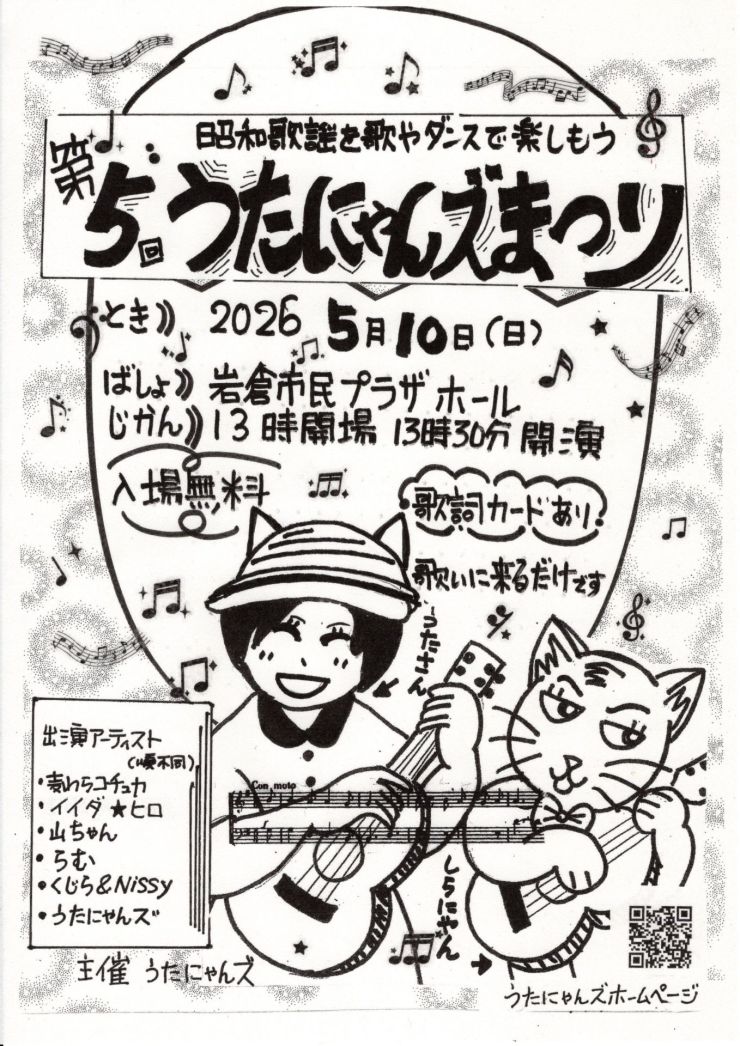 昭和歌謡を歌やダンスで楽しもう
第5回うたにゃんズまつり
とき 2026 5月10日(日)
ばしょ 岩倉市民プラザホール
じかん 13時開場 13時30分開演
入場無料
歌詞カードあり
歌いに来るだけです
うたさん
出演アーティスト
(順不同)
・麦わらコチュカ
・イイダ★ヒロ
・山ちゃん
・らむ
・くじら&Nissy
・うたにゃんズ
Con moto
しらにゃん
主催 うたにゃんズ
うたにゃんズホームページ